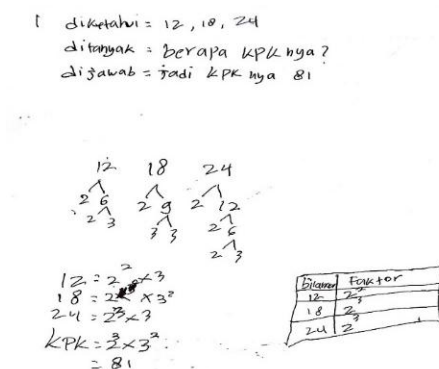 1 diketahui = 12, 18, 24
ditanyak = berapa KPK nya?
dijawab = jadi KPK nya 81
12 18 24
2 6 2 9 2 12
2 3 3 3 2 6
2 3
12 = 2² × 3
18 = 2 × 3²
24 = 2³ × 3
KPK = 2³ × 3²
= 81
Bilangan Faktor
12 2²
18 2
24 2